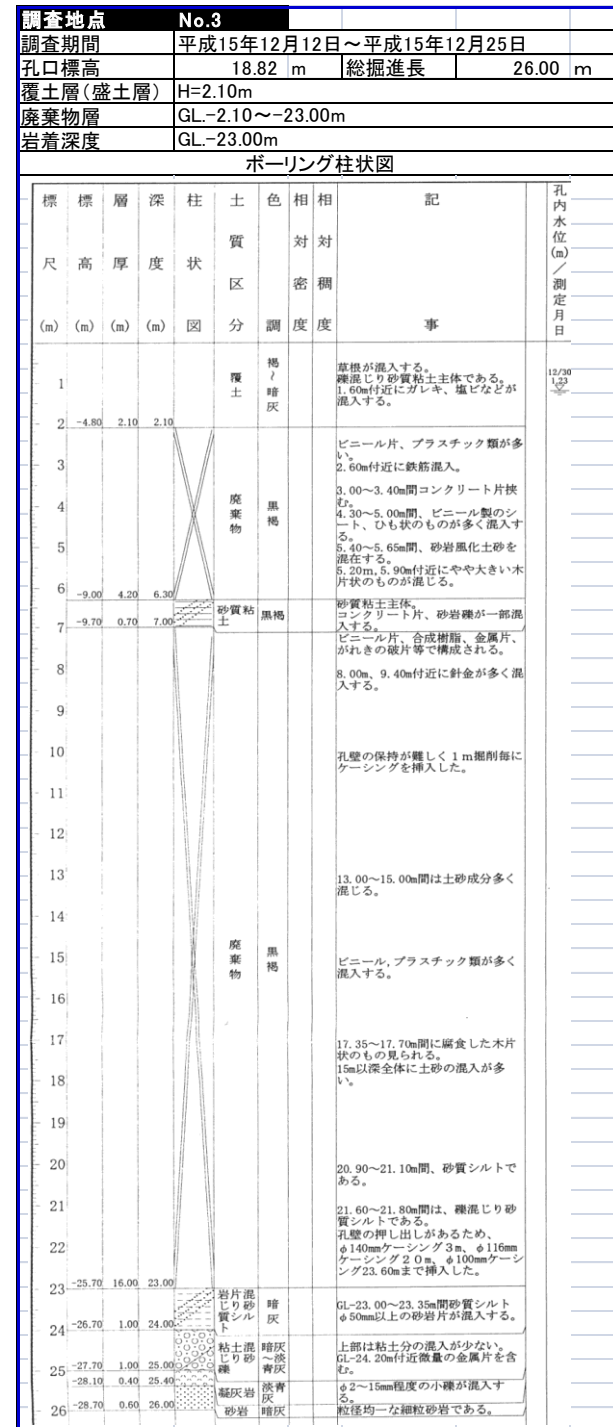 調査地点 No.3
調査期間 平成15年12月12日～平成15年12月25日
孔口標高 18.82 m 総掘進長 26.00 m
覆土層(盛土層) H=2.10m
廃棄物層 GL.-2.10～-23.00m
岩着深度 GL.-23.00m
ボーリング柱状図
標尺(m) 標高(m) 層厚(m) 深度(m) 柱状図 土質区分 色調 相対密度 相対稠度 記事 孔内水位(m)／測定月日
覆土
褐～暗灰
草根が混入する。
礫混じり砂質粘土主体である。
1.60m付近にガレキ、塩ビなどが
混入する。
12/30
1.23
1
2 -4.80 2.10 2.10
ビニール片、プラスチック類が多
い。
2.60m付近に鉄筋混入。
3
3.00～3.40m間コンクリート片挟
む。
4
廃棄物
黒褐
4.30～5.00m間、ビニール製のシ
ート、ひも状のものが多く混入す
る。
5
5.40～5.65m間、砂岩風化土砂を
混在する。
5.20m,5.90m付近にやや大きい木
片状のものが混じる。
6 -9.00 4.20 6.30
砂質粘土
黒褐
砂質粘土主体。
コンクリート片、砂岩礫が一部混
入する。
7 -9.70 0.70 7.00
ビニール片、合成樹脂、金属片、
がれきの破片等で構成される。
8
8.00m、9.40m付近に針金が多く混
入する。
9
10
孔壁の保持が難しく１ｍ掘削毎に
ケーシングを挿入した。
11
12
13
13.00～15.00m間は土砂成分多く
混じる。
14
15
廃棄物
黒褐
ビニール,プラスチック類が多く
混入する。
16
17
17.35～17.70m間に腐食した木片
状のもの見られる。
15m以深全体に土砂の混入が多
い。
18
19
20
20.90～21.10m間、砂質シルトで
ある。
21
21.60～21.80m間は、礫混じり砂
質シルトである。
孔壁の押し出しがあるため、
φ140mmケーシング３ｍ、φ116mm
ケーシング２０ｍ、φ100mmケーシ
ング23.60mまで挿入した。
22
23 -25.70 16.00 23.00
岩片混じり砂質シルト
暗灰
GL-23.00～23.35m間砂質シルト
φ50mm以上の砂岩片が混入する。
24 -26.70 1.00 24.00
粘土混じり砂礫
暗灰～淡青灰
上部は粘土分の混入が少ない。
GL-24.20m付近微量の金属片を含
む。
25 -27.70 1.00 25.00
-28.10 0.40 25.40
凝灰岩
淡青灰
φ2～15mm程度の小礫が混入す
る。
26 -28.70 0.60 26.00
砂岩
暗灰
粒径均一な細粒砂岩である。